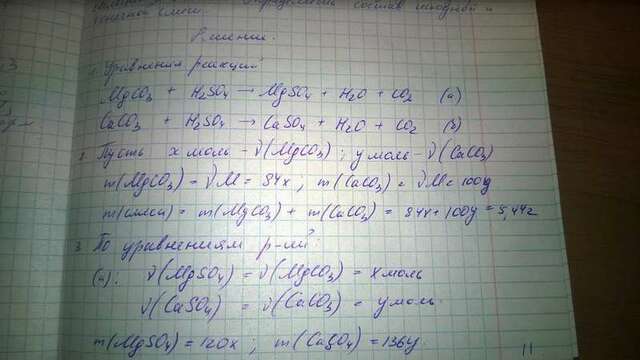 Определить состав исходной и
конечной смеси.
Решение.
1. Уравнения реакций
MgCO3 + H2SO4 → MgSO4 + H2O + CO2 (а)
CaCO3 + H2SO4 → CaSO4 + H2O + CO2 (б)
2. Пусть x моль - ν(MgCO3); y моль - ν(CaCO3)
m(MgCO3) = νM = 84x, m(CaCO3) = νM = 100y
m(смеси) = m(MgCO3) + m(CaCO3) = 84x + 100y = 5,44г
3. По уравнениям р-ий:
(а): ν(MgSO4) = ν(MgCO3) = x моль
ν(CaSO4) = ν(CaCO3) = y моль
m(MgSO4) = 120x; m(CaSO4) = 136y
11